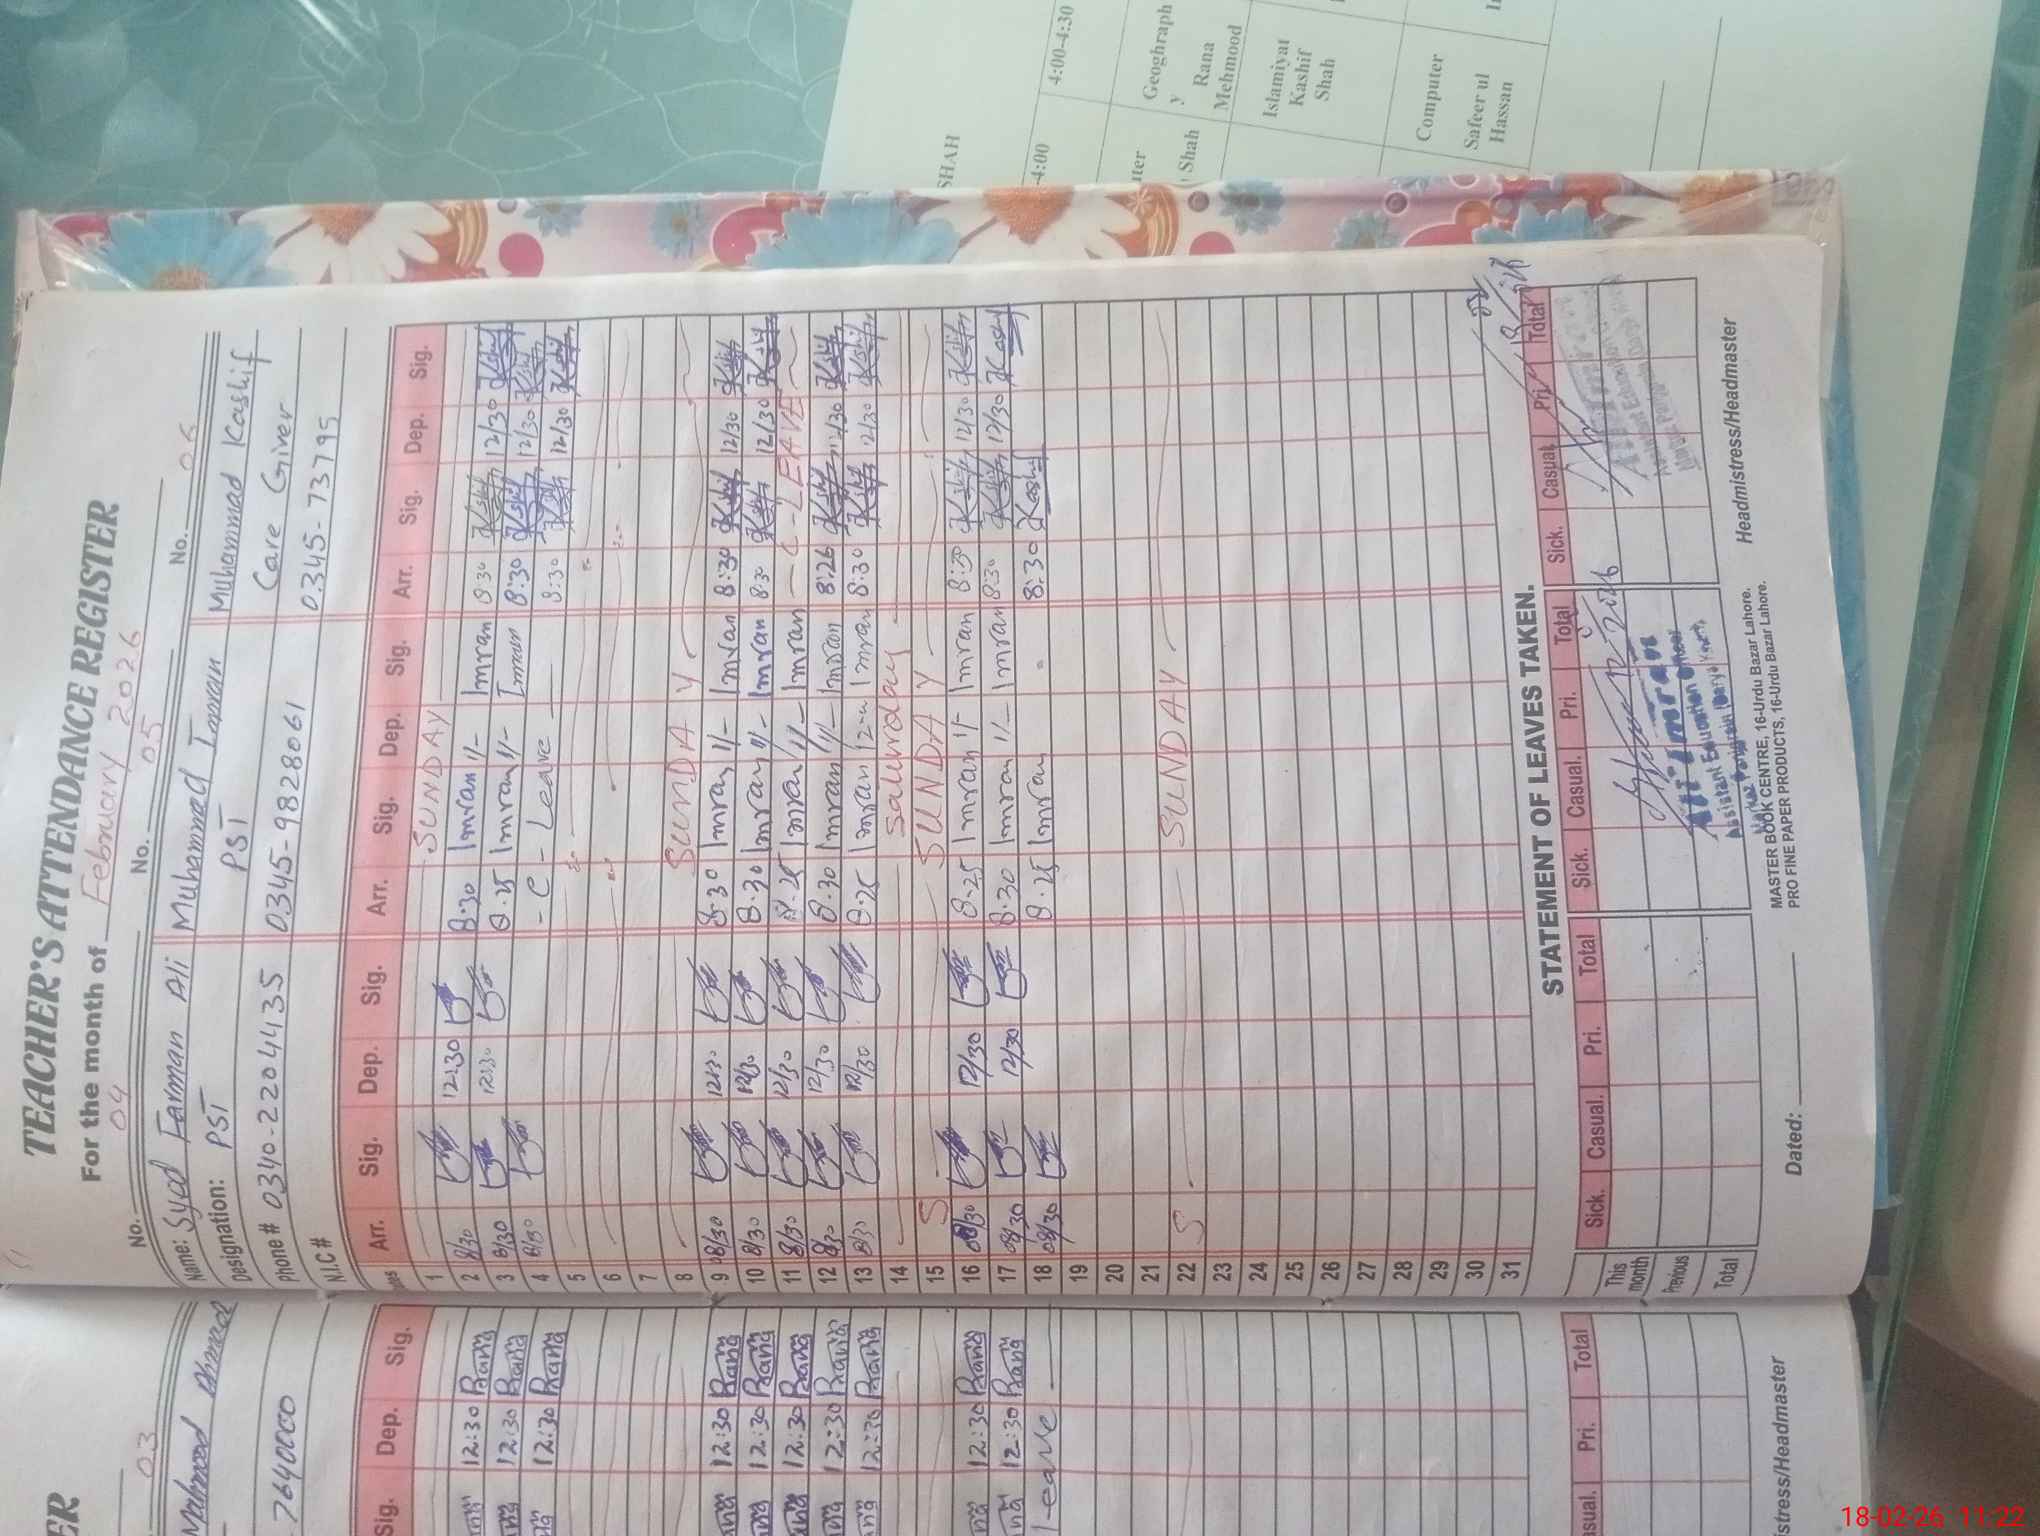 TEACHER'S ATTENDANCE REGISTER
For the month of February 2026
No. 04 No. 05 No. 06
Name: Syed Farman Ali Muhammad Imran Muhammad Kashif
Designation: PST PST Care Giver
Phone # 0340-2204435 0345-9828061 0345-73795
N.I.C #
Arr. Sig. Dep. Sig. Arr. Sig. Dep. Sig. Arr. Sig. Dep. Sig.
1 SUNDAY
2 8/30 12:30 8.30 Imran 1/- Imran 8:30 Kashif 12/30 Kashif
3 8/30 12:30 8.25 Imran 1/- Imran 8:30 Kashif 12/30 Kashif
4 8/30 - C - Leave 8:30 Kashif 12/30 Kashif
5
6
7
8 SUNDAY
9 08/30 12:30 8.30 Imran 1/- Imran 8:30 Kashif 12/30 Kashif
10 8/30 12/30 8.30 Imran 1/- Imran 8:30 Kashif 12/30 Kashif
11 8/30 12/30 8.25 Imran 1/- Imran C-LEAVE
12 8/30 12/30 8.30 Imran 1/- Imran 8:26 Kashif 12/30 Kashif
13 8/30 12/30 8.25 Imran 12- Imran 8:30 Kashif 12/30 Kashif
14 Saturday
15 S SUNDAY
16 08/30 12/30 8.25 Imran 1/- Imran 8:30 Kashif 12/30 Kashif
17 08/30 12/30 8.30 Imran 1/- Imran 8:30 Kashif 12/30 Kashif
18 08/30 8.25 Imran 8:30 Kashif
19
20
21
22 S SUNDAY
23
24
25
26
27
28
29
30
31
STATEMENT OF LEAVES TAKEN.
Sick. Casual. Pri. Total Sick. Casual. Pri. Total Sick. Casual. Pri. Total
This month
Previous
Total
Assistant Education Officer
Dated: Headmistress/Headmaster
MASTER BOOK CENTRE, 16-Urdu Bazar Lahore.
PRO FINE PAPER PRODUCTS, 16-Urdu Bazar Lahore.
03
Mahmood Ahmad
7640000
Sig. Dep. Sig.
12:30 Rana
12:30 Rana
12:30 Rana
12:30 Rana
12:30 Rana
12:30 Rana
12:30 Rana
12:30 Rana
12:30 Rana
12:30 Rana
Leave
Pri. Total
SHAH
4:00-4:30
Geoghraph
y Rana
Mehmood
Shah
Islamiyat
Kashif
Shah
Computer
Safeer ul
Hassan
18-02-26 11:22